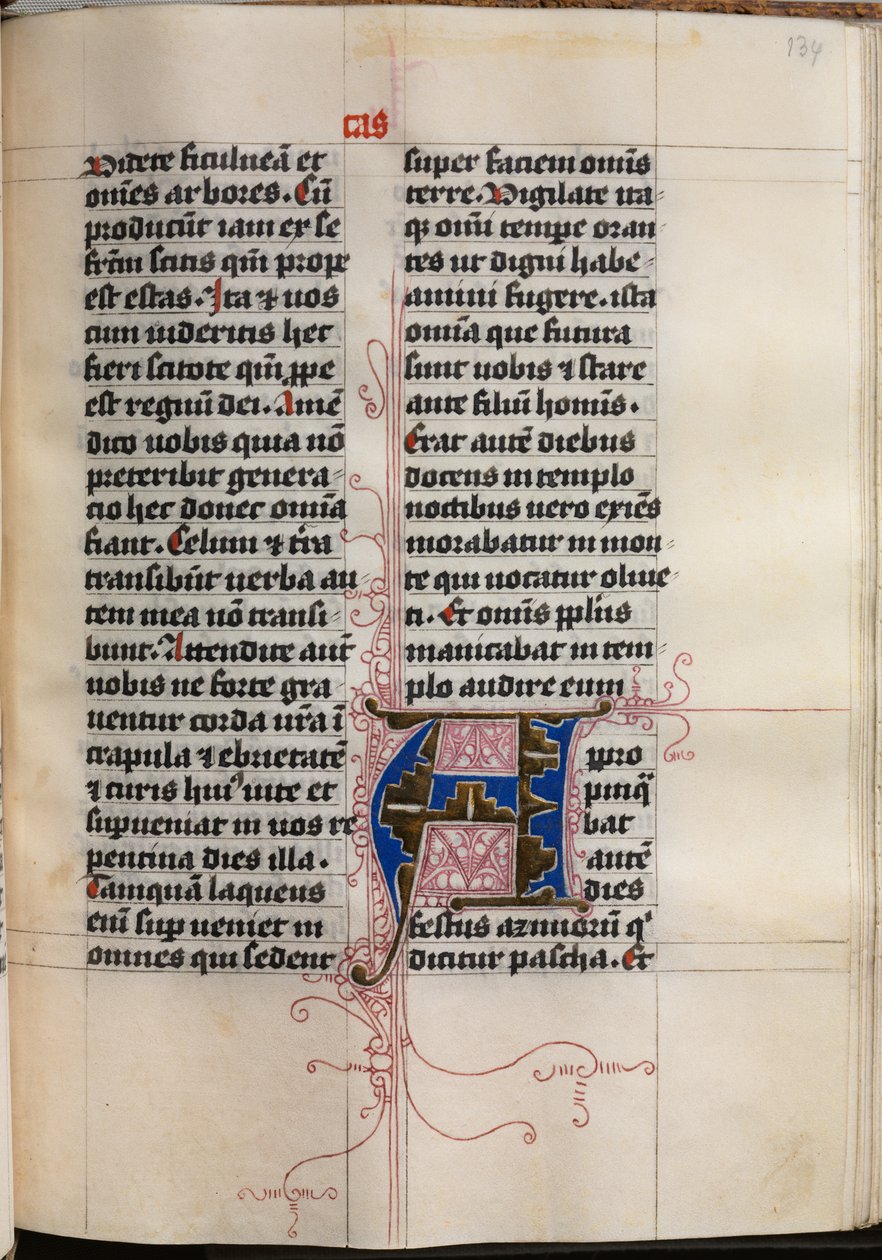 134
cas
Videte ficulneā et
om̄es arbores. Cū
producūt iam ex se
fr̄cm scitis qm̄ prope
est estas. Ita ⁊ uos
cum uideritis hec
fieri scitote qm̄ ꝓpe
est regnū dei. Amē
dico uobis quia nō
preteribit genera⸗
cio hec donec om̄ia
fiant. Celum ⁊ tr̄ra
transibūt uerba au⸗
tem mea nō transi⸗
bunt. Attendite aut̄
uobis ne forte gra⸗
uentur corda ur̄a ī
crapula ⁊ ebrietatē
⁊ curis huiꝰ uite et
suꝑueniat in uos re
pentina dies illa.
Tamquā laqueus
enī suꝑ ueniet in
omnes qui sedent
super faciem om̄is
terre. Vigilate ita⸗
qꝫ om̄i tempe oran⸗
tes ut digni habe⸗
amini fugere. ista
om̄ia que futura
sunt uobis ⁊ stare
ante filiū homīs.
Erat autē diebus
docens in templo
noctibus uero exiēs
morabatur in mon⸗
te qui uocatur oliue⸗
ti. Et om̄is ppl̄us
manicabat in tem⸗
plo audire eum
A ꝓpro
pinqͣ
bat
autē
dies
festus azimorū qⁱ
dicitur pascha. Et